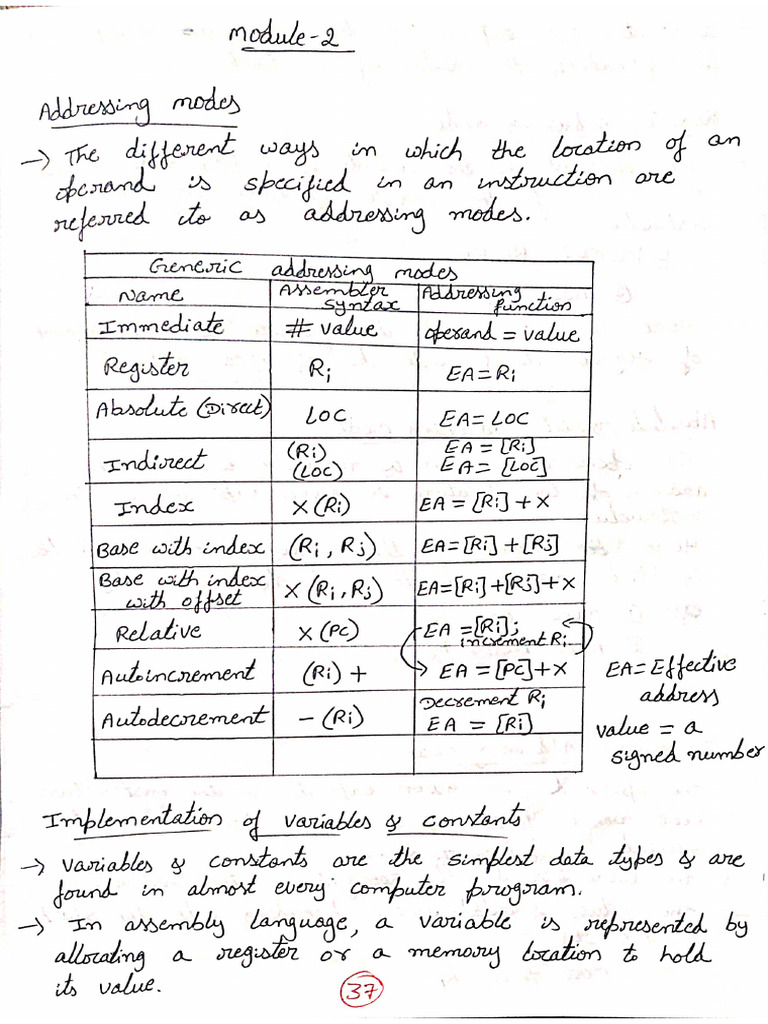 Module-2
Addressing modes
→ The different ways in which the location of an
operand is specified in an instruction are
referred to as addressing modes.
Generic addressing modes
Name Assembler Syntax Addressing function
Immediate # value operand = value
Register Ri EA = Ri
Absolute (Direct) LOC EA = LOC
Indirect (Ri) (LOC) EA = [Ri] EA = [LOC]
Index X (Ri) EA = [Ri] + X
Base with index (Ri, Rj) EA = [Ri] + [Rj]
Base with index with offset X (Ri, Rj) EA = [Ri] + [Rj] + X
Relative X (PC) EA = [Ri]; increment Ri
Autoincrement (Ri) + EA = [PC] + X
Autodecrement - (Ri) Decrement Ri EA = [Ri]
EA = Effective
address
value = a
signed number
Implementation of variables & constants
→ variables & constants are the simplest data types & are
found in almost every computer program.
→ In assembly language, a variable is represented by
allocating a register or a memory location to hold
its value.
37